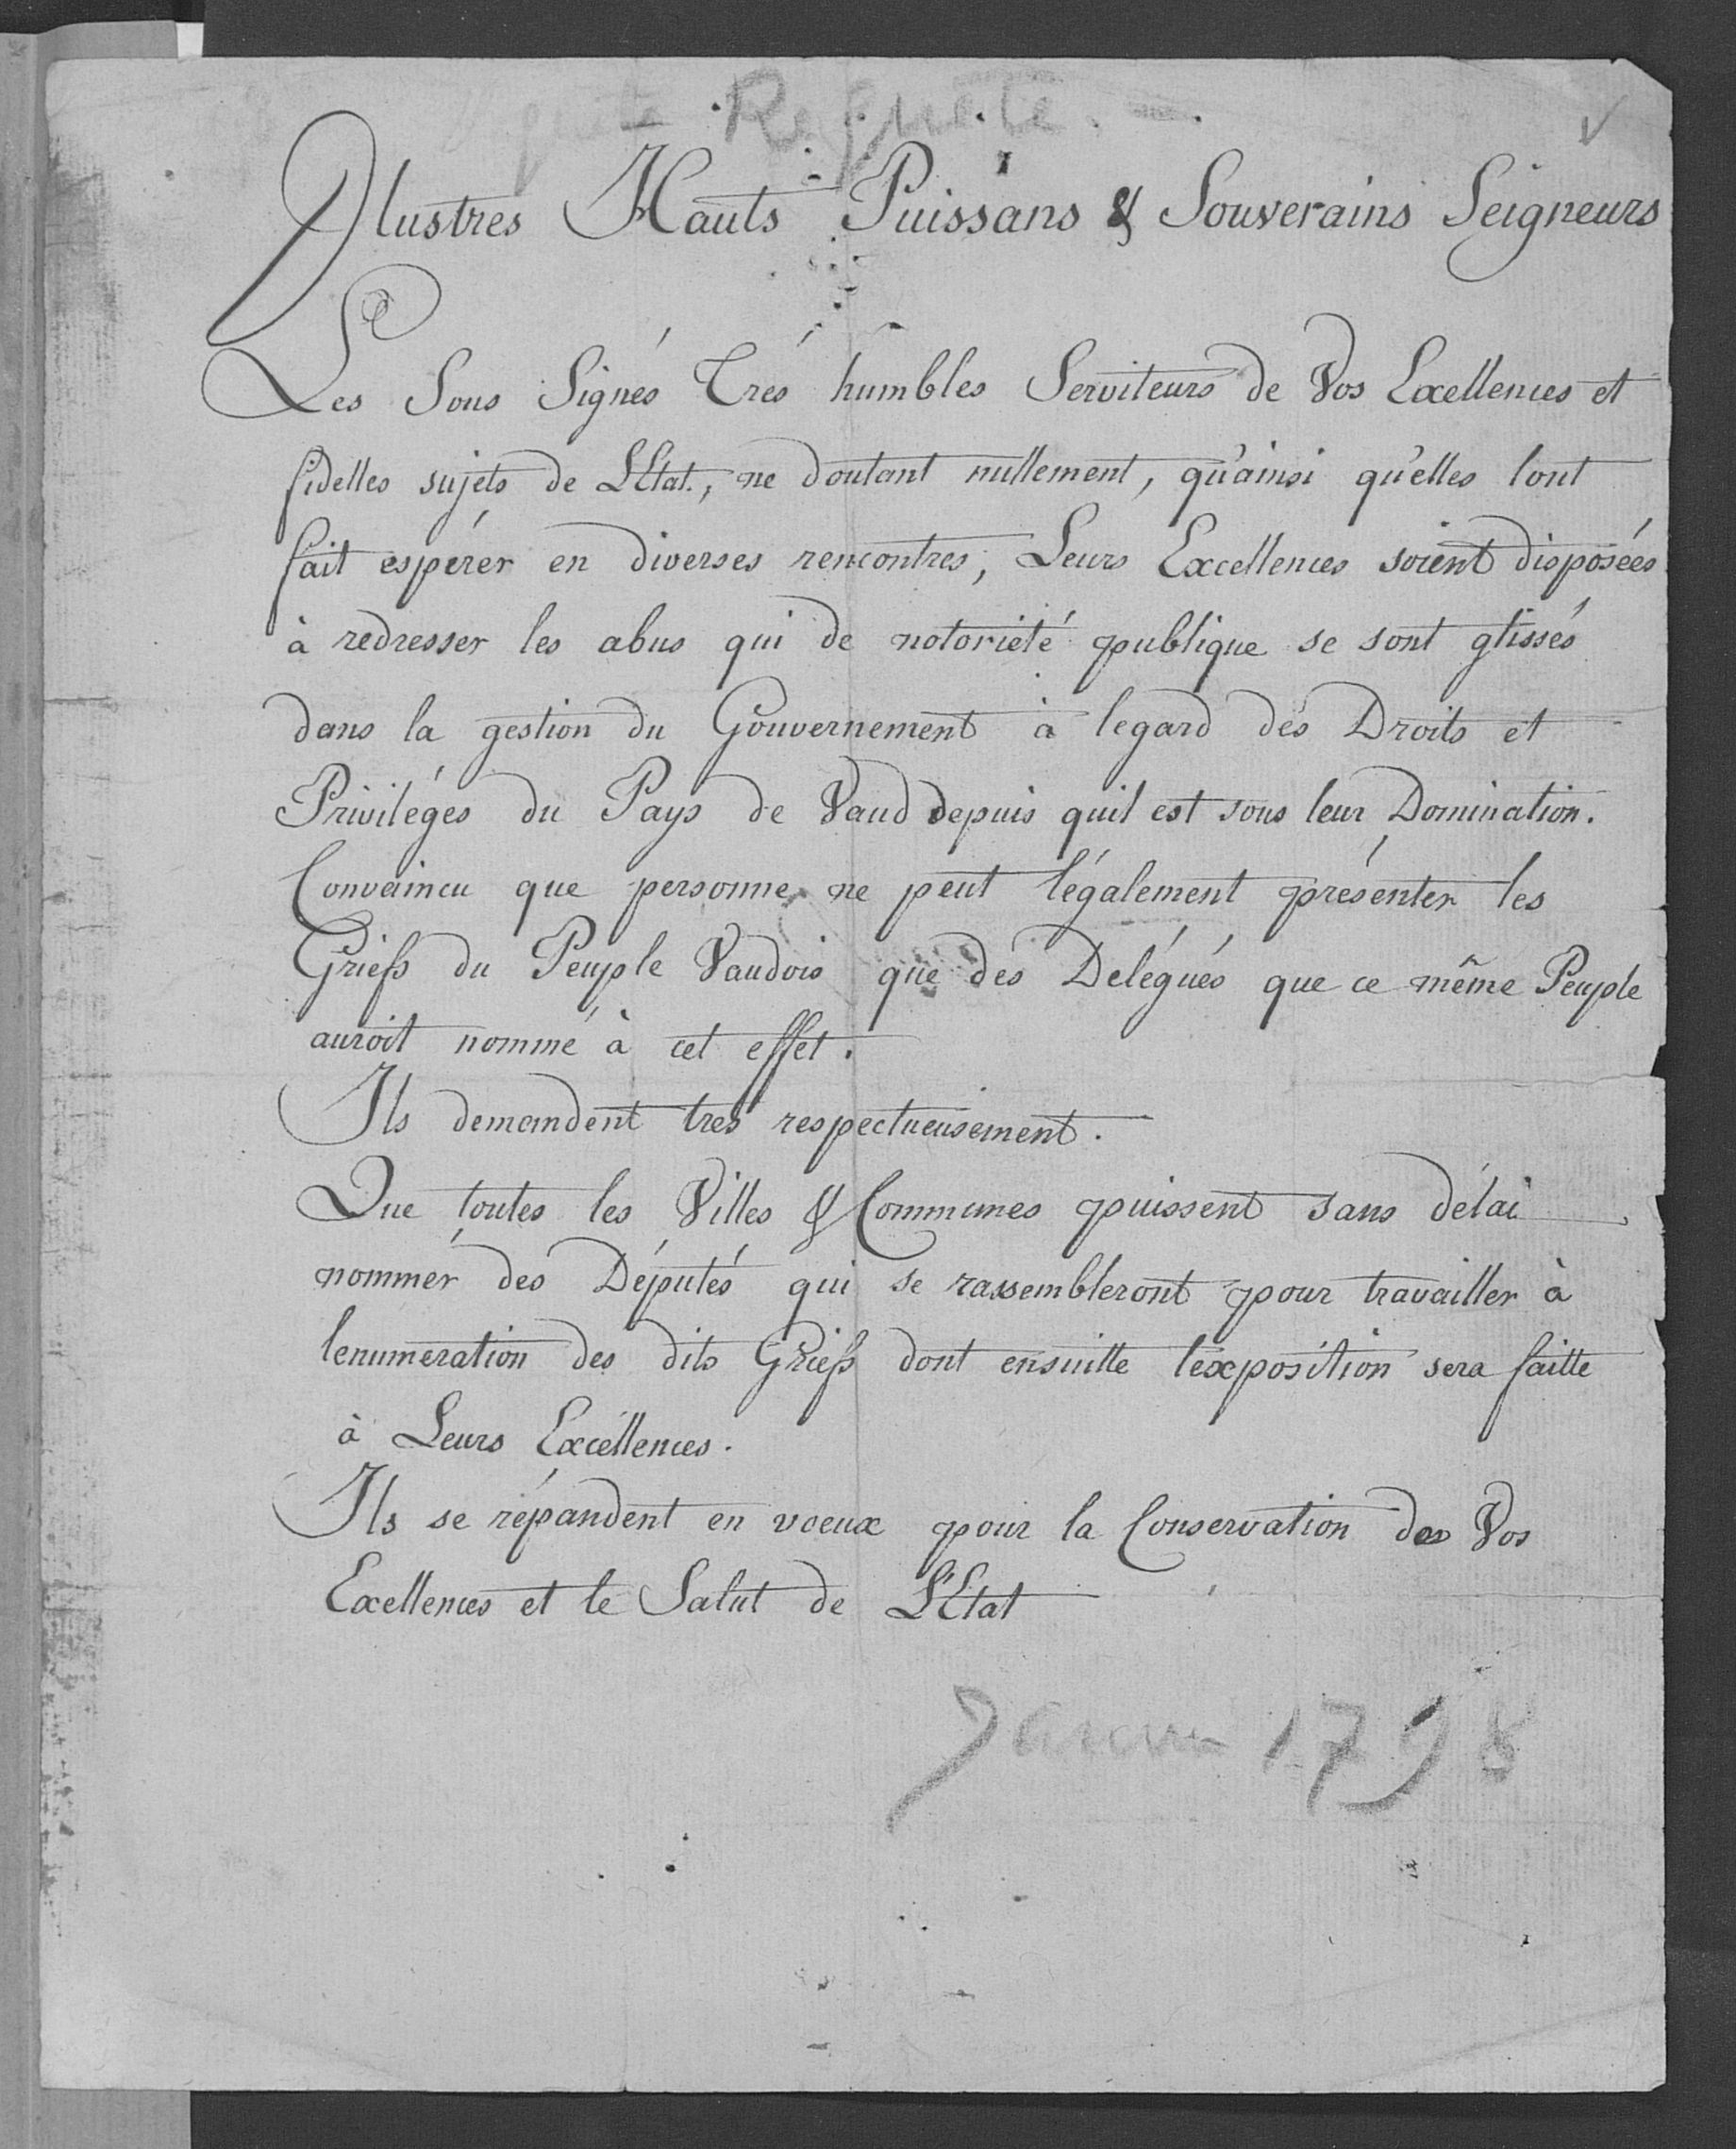 Requête.
Illustres Hauts Puissans & Souverains Seigneurs
Les Sous Signés Trés humbles Serviteurs de Vos Exellences et
fidelles sujets de LEtat, ne doutant nullement, qu'ainsi qu'elles lont
fait espérer en diverses rencontres, Leurs Excellences soient disposées
à redresser les abus qui de notorieté publique se sont glissés
dans la gestion du Gouvernement à legard des Droits et
Priviléges du Pays de Vaud depuis quil est sous leur Domination.
Convaincu que personne ne peut légalement présenter les
Griefs du Peuple Vaudois que des Delégués que ce même Peuple
auroit nommé à cet effet.
Ils demandent tres respectueusement.
Que toutes les Villes & Communes puissent sans délai
nommér des Députés qui se rassembleront pour travailler à
lenumeration des dits Griefs dont ensuitte lexposition sera faitte
à Leurs Excéllences.
Ils se répandent en voeux pour la Conservation de Vos
Exellences et le Salut de L'Etat
Janvier 1798